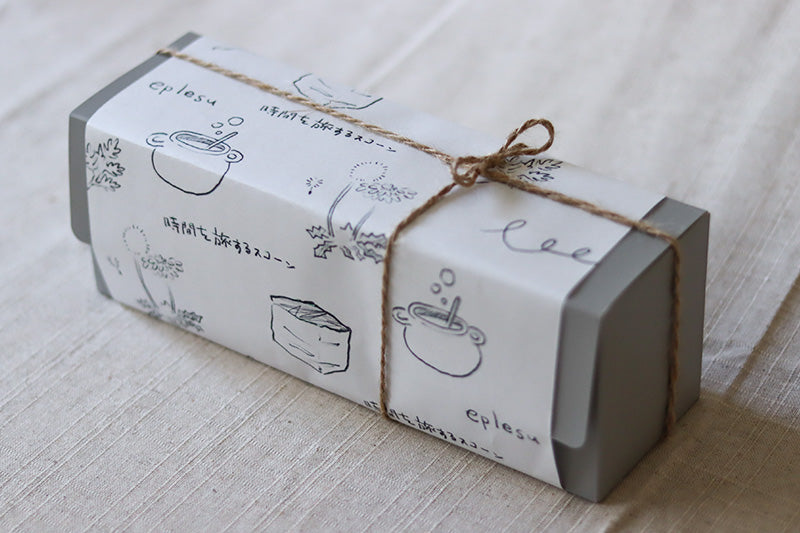 eplesu
時間を旅するスコーン
時間を旅するスコーン
eplesu
時間を旅するスコーン